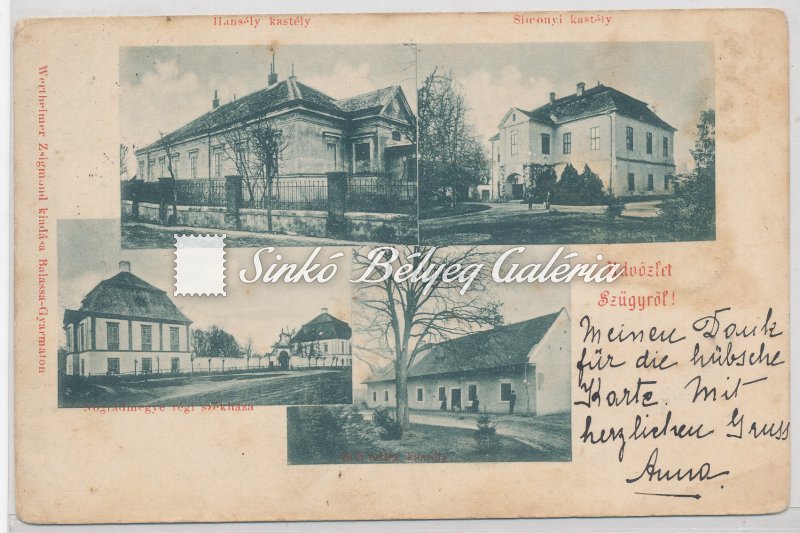 Hansély kastély
Simonyi kastély
Wertheimer Zsigmond kiadása Balassa-Gyarmaton
Sinkó Bélyeg Galéria
Üdvözlet
Szügyről!
Nógrádmegye régi székháza
kastély
Meinen Dank
für die hübsche
Karte. Mit
herzlichen Gruss
Anna